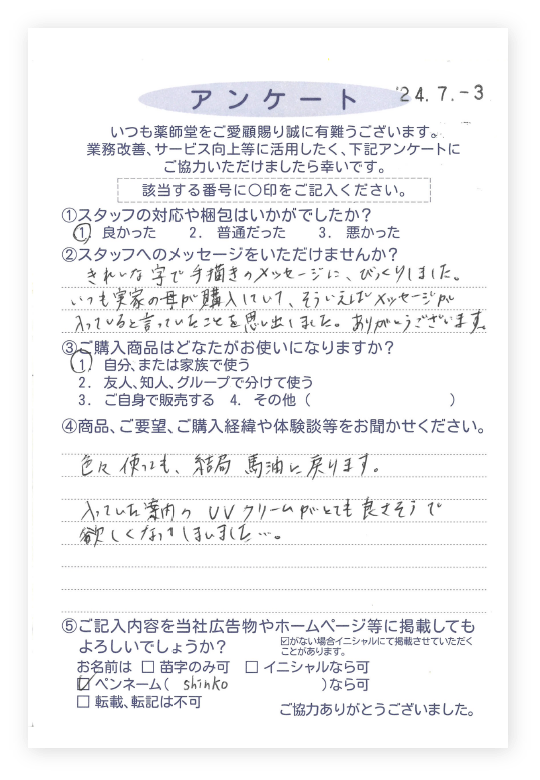 アンケート
'24.7.-3
いつも薬師堂をご愛顧賜り誠に有難うございます。
業務改善、サービス向上等に活用したく、下記アンケートに
ご協力いただけましたら幸いです。
該当する番号に〇印をご記入ください。
①スタッフの対応や梱包はいかがでしたか？
1. 良かった 2. 普通だった 3. 悪かった
②スタッフへのメッセージをいただけませんか？
きれいな字で手描きのメッセージに、びっくりしました。
いつも実家の母が購入していて、そういえばメッセージが
入っていると言っていたことを思い出しました。ありがとうございます。
③ご購入商品はどなたがお使いになりますか？
1. 自分、または家族で使う
2. 友人、知人、グループで分けて使う
3. ご自身で販売する 4. その他（ ）
④商品、ご要望、ご購入経緯や体験談等をお聞かせください。
色々使っても、結局 馬油に戻ります。
入っていた案内の UVクリームがとても良さそうで
欲しくなってしまいました…。
⑤ご記入内容を当社広告物やホームページ等に掲載しても
よろしいでしょうか？
☑がない場合イニシャルにて掲載させていただく
ことがあります。
お名前は □ 苗字のみ可 □ イニシャルなら可
☑ ペンネーム（ shinko ）なら可
□ 転載、転記は不可
ご協力ありがとうございました。